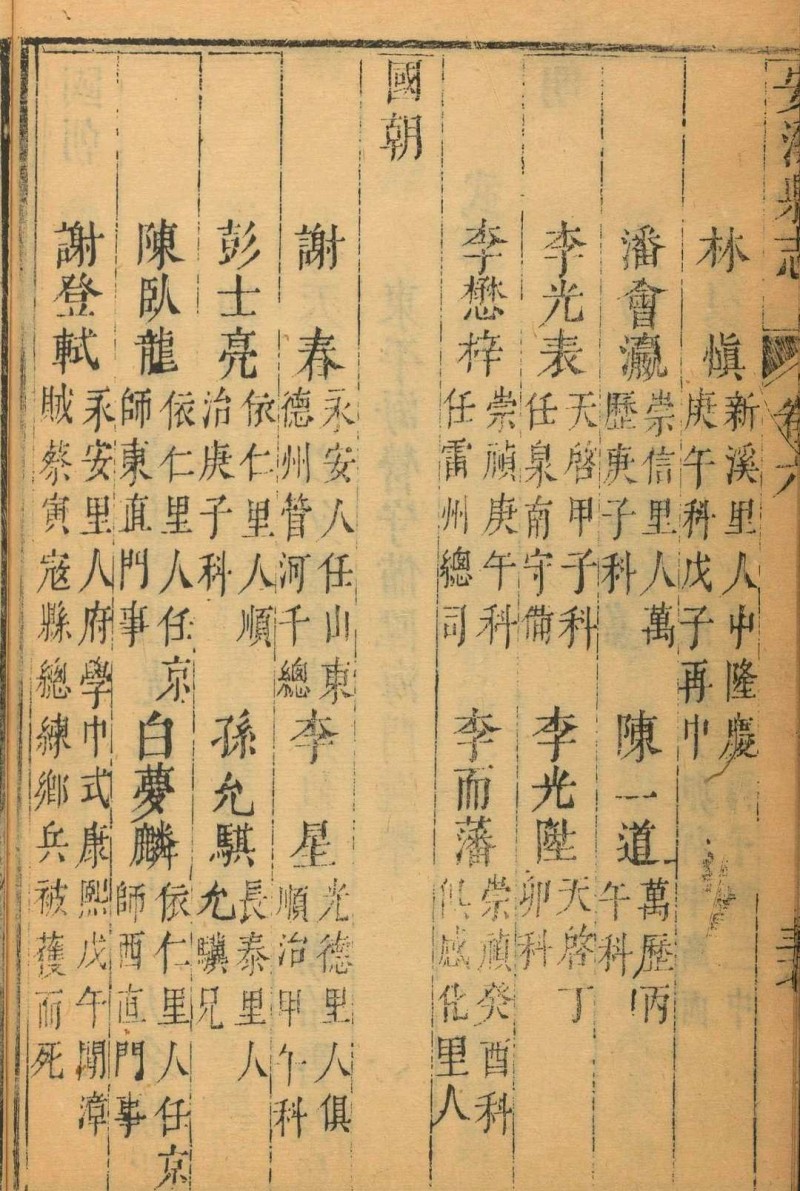 安溪縣志 卷六
林慎 新溪里人中隆慶庚午科戊子再中
潘會瀛 崇信里人萬歷庚子科 陳一道 萬歷丙午科
李光表 天啓甲子科任泉南守備 李光陞 天啓丁卯科
李懋梓 崇禎庚午科任雷州總司 李而藩 崇禎癸酉科俱感化里人
國朝
謝春 永安人任山東德州管河千總 李星 光德里人俱順治甲午科
彭士亮 依仁里人順治庚子科 孫允騏 長泰里人允驥兄
陳臥龍 依仁里人任京師東直門事 白夢麟 依仁里人任京師西直門事
謝登軾 永安里人府學中式康熙戊午閒漳賊蔡寅寇縣總練鄉兵被獲而死